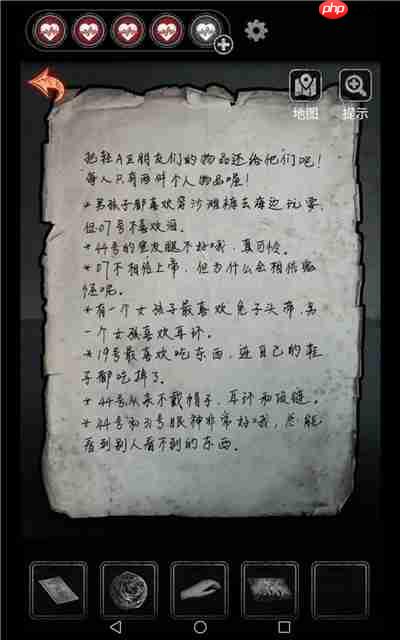 php
地图 提示
把轻A三朋友们的物品还给他们吧!
每人只有两件个人物品喔!
*男孩子都喜欢穿沙滩裤去海边玩耍,
但07号不喜欢。
*44号的朋友腿不好哦,真可怜。
*07不相信上帝,但为什么会相信鬼
怪呢。
*有一个女孩子最喜欢兔子头带,另
一个女孩喜欢耳环。
*19号最喜欢吃东西,连自己的鞋
子都吃掉了。
*44号从来不戴帽子、耳环和项链。
*44号和31号眼神非常好哦,总能
看到别人看不到的东西。